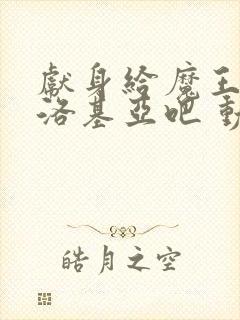 獻身給魔王
洛基亞吧 動
皓月之空